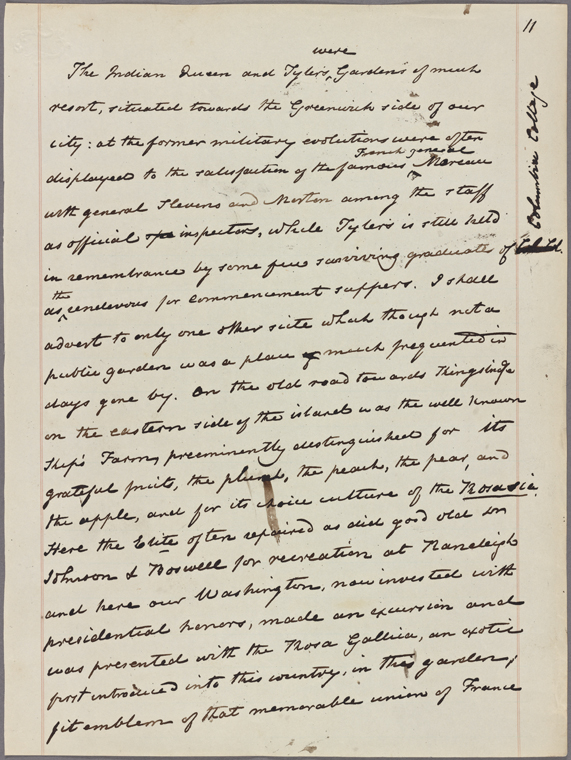 11
were
The Indian Queen and Tyler's, Gardens of much
resort, situated towards the Greenwich side of our
city: at the former military evolutions were often
French general
displayed to the satisfaction of the famous Moreau
with general Stevens and Morton among the staff
as official inspectors, while Tyler's is still held
in remembrance by some few surviving graduates of
Columbia College
the
as rendevous for commencement suppers. I shall
advert to only one other suite which though not a
public garden was a place of much frequented in
days gone by. On the old road towards Kingsbridge
on the eastern side of the island was the well known
Ship's Farm, preeminently distinguished for its
grateful fruits, the plumb, the peach, the pear, and
the apple, and for its choice culture of the Rosacia.
Here the Elite often repaired as did good old Dr
Johnson & Boswell for recreation at Raneleigh
and here our Washington, now invested with
presidential honors, made an excursion and
was presented with the Rosa Gallica, an exotic
first introduced into this country, in this garden;
fit emblem of that memorable union of France